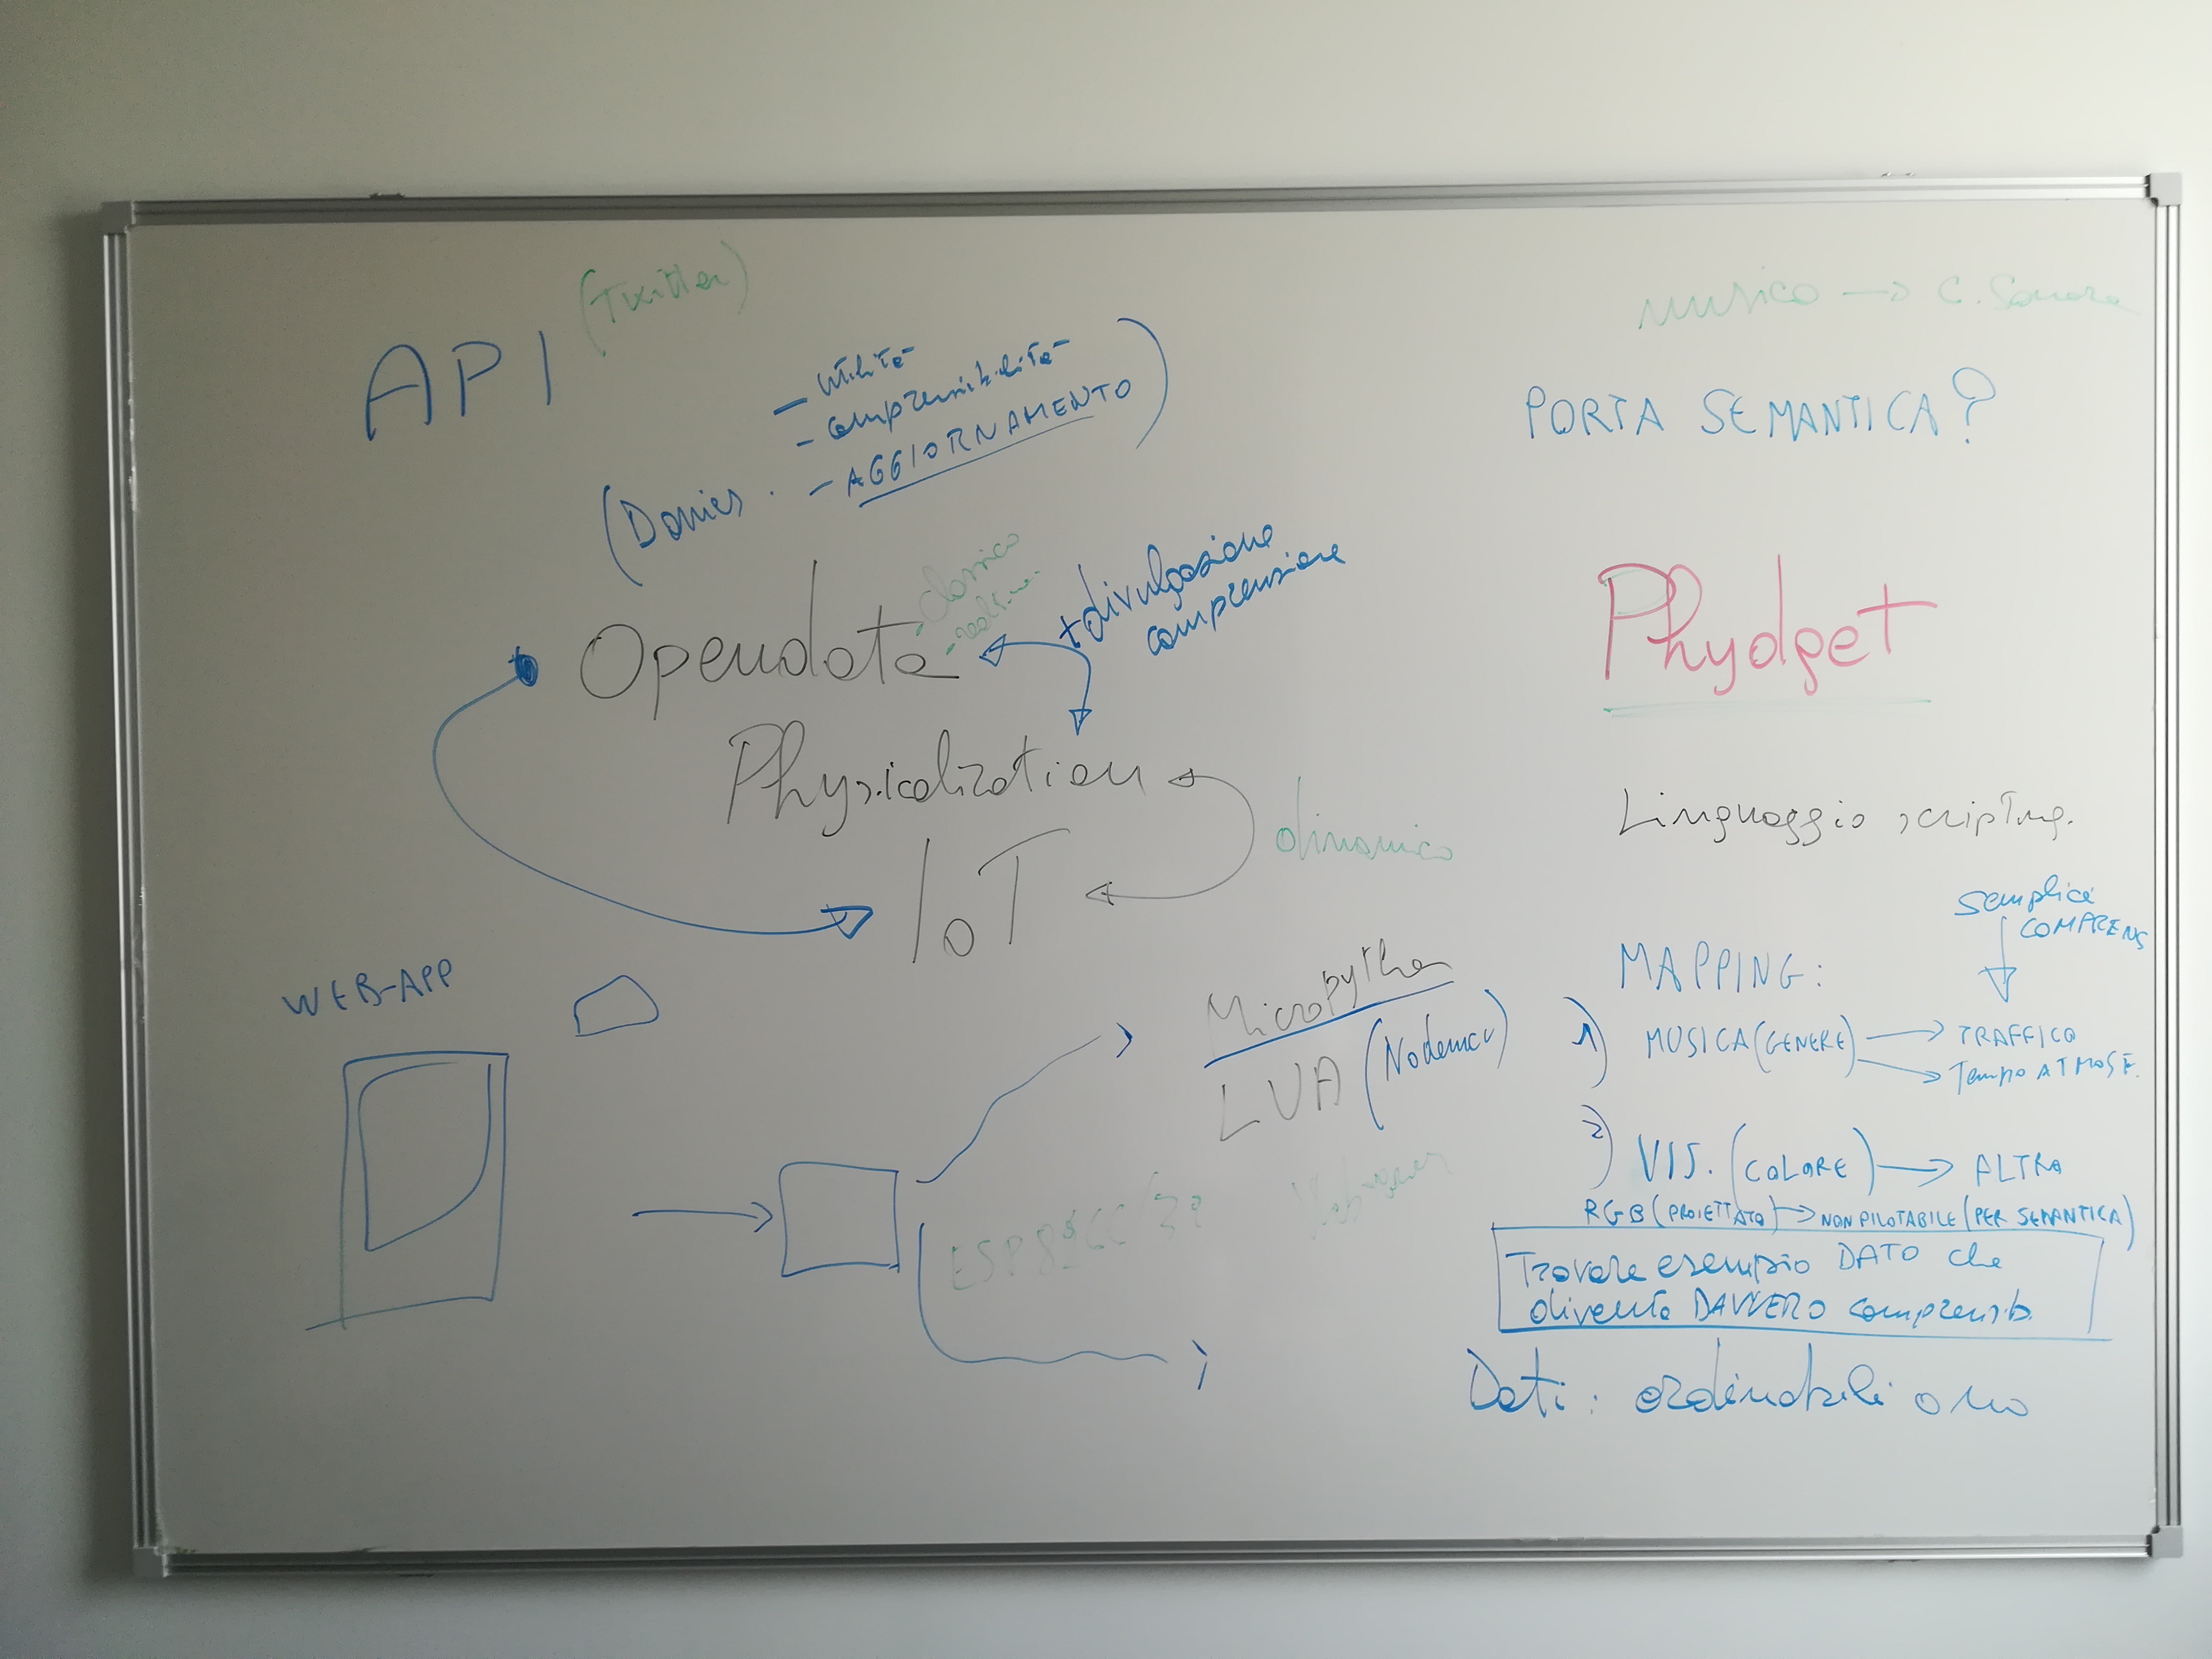 API (Twitter)
- utilità
- comprensibilità
- AGGIORNAMENTO
(Davies
Opendata
- classico
- realtime
+ divulgazione
comprensione
Physicalization
dinamico
IoT
WEB-APP
Micropython
LUA (Nodemcu)
ESP8266/32
musica → C. Sonora
PORTA SEMANTICA?
Phydget
Linguaggio scripting.
semplice
COMPRENS
MAPPING:
1) MUSICA (GENERE) → TRAFFICO
→ Tempo ATMOSF.
2) VIS. (COLORE) → ALTRO
RGB (PROIETTATO) → NON PILOTABILE (PER SEMANTICA)
Trovare esempio DATO che
diventa DAVVERO comprensib.
Dati: ordinabili o no